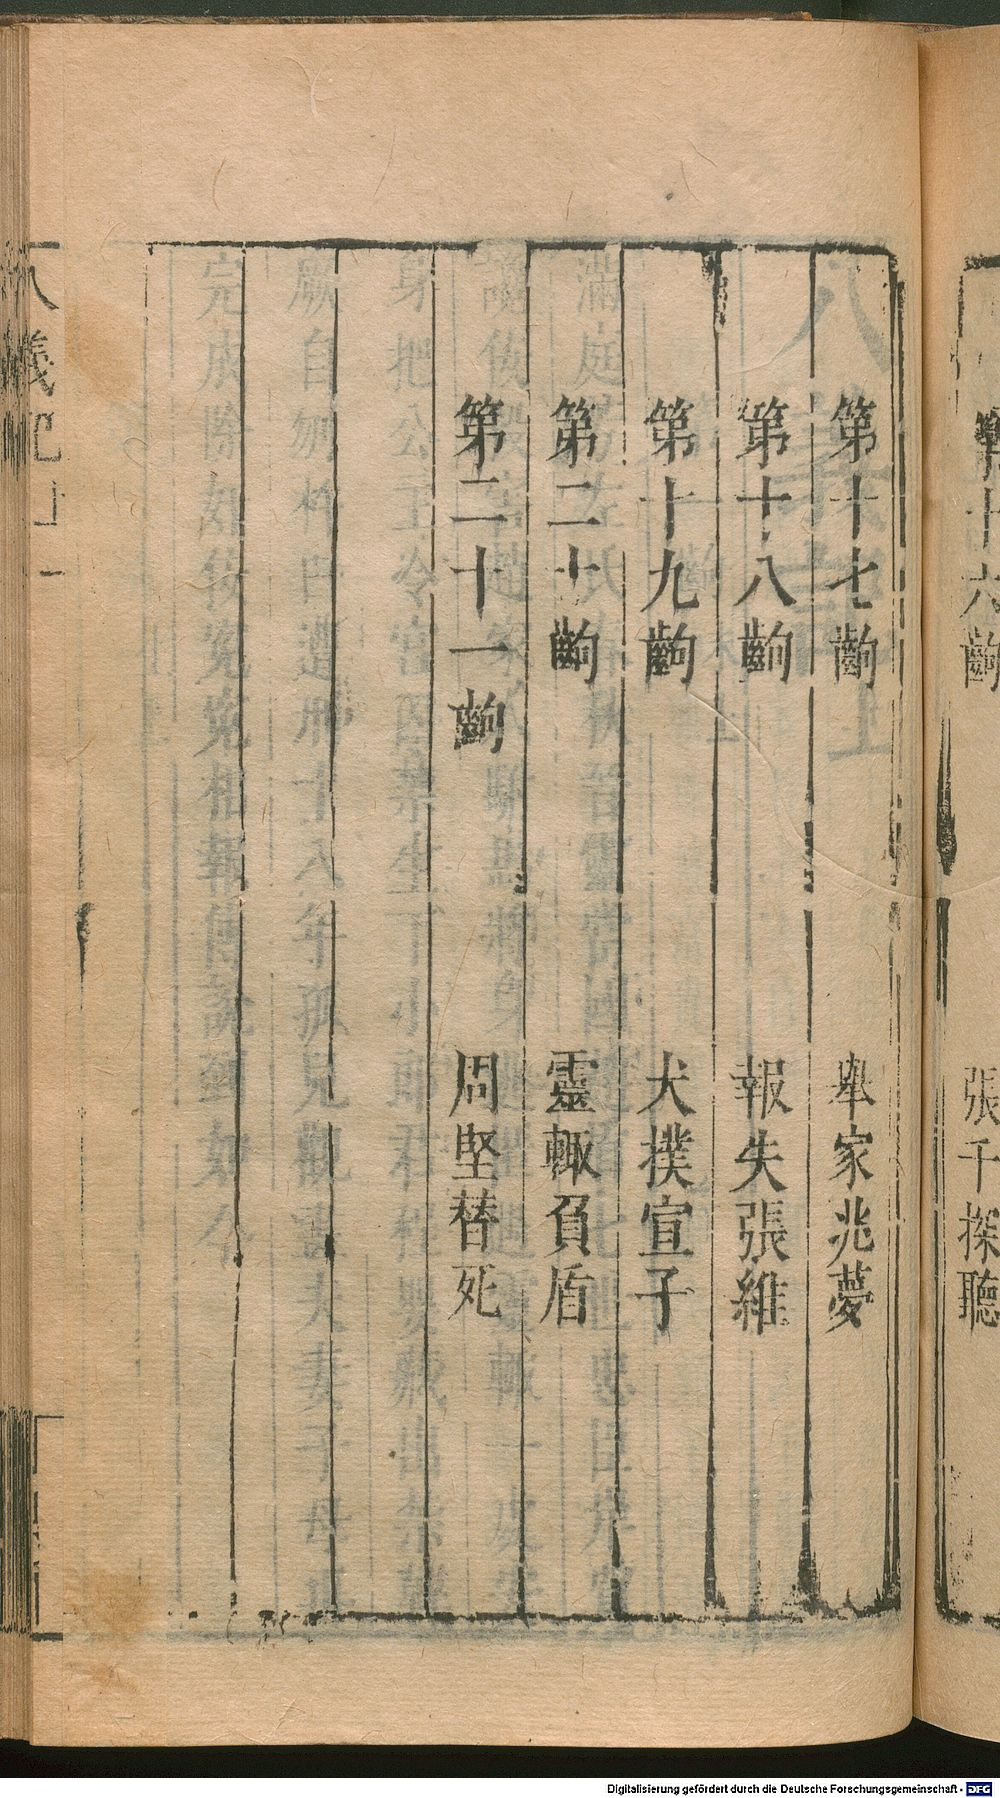 第十六齣　張千探聽
第十七齣　舉家兆夢
第十八齣　報失張維
第十九齣　犬撲宣子
第二十齣　靈輙負盾
第二十一齣　周堅替死
八義記
Digitalisierung gefördert durch die Deutsche Forschungsgemeinschaft - DFG